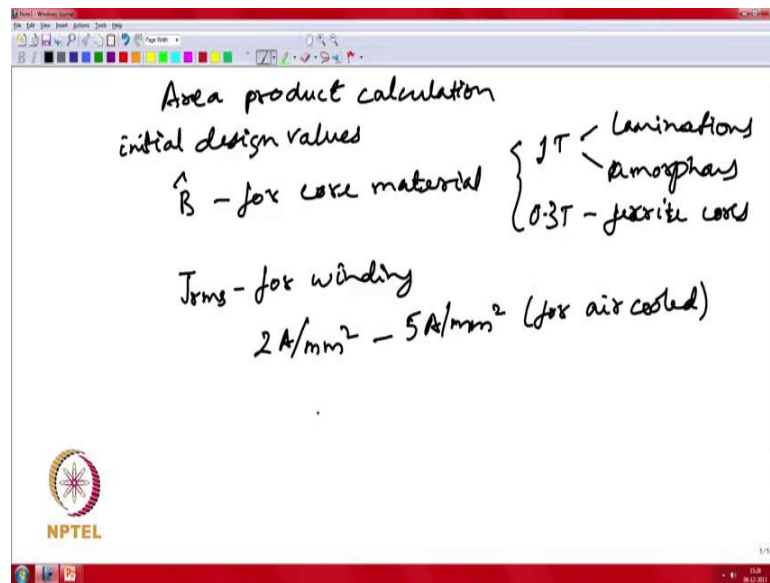 Note1 - Windows Journal
File Edit View Insert Actions Tools Help
Page Width
Area product calculation
initial design values
B̂ - for core material { 1T < Laminations
amorphous
0.3T - ferrite cores
Jrms - for winding
2 A/mm² - 5 A/mm² (for air cooled)
NPTEL
5/5
15:28
06-12-2017